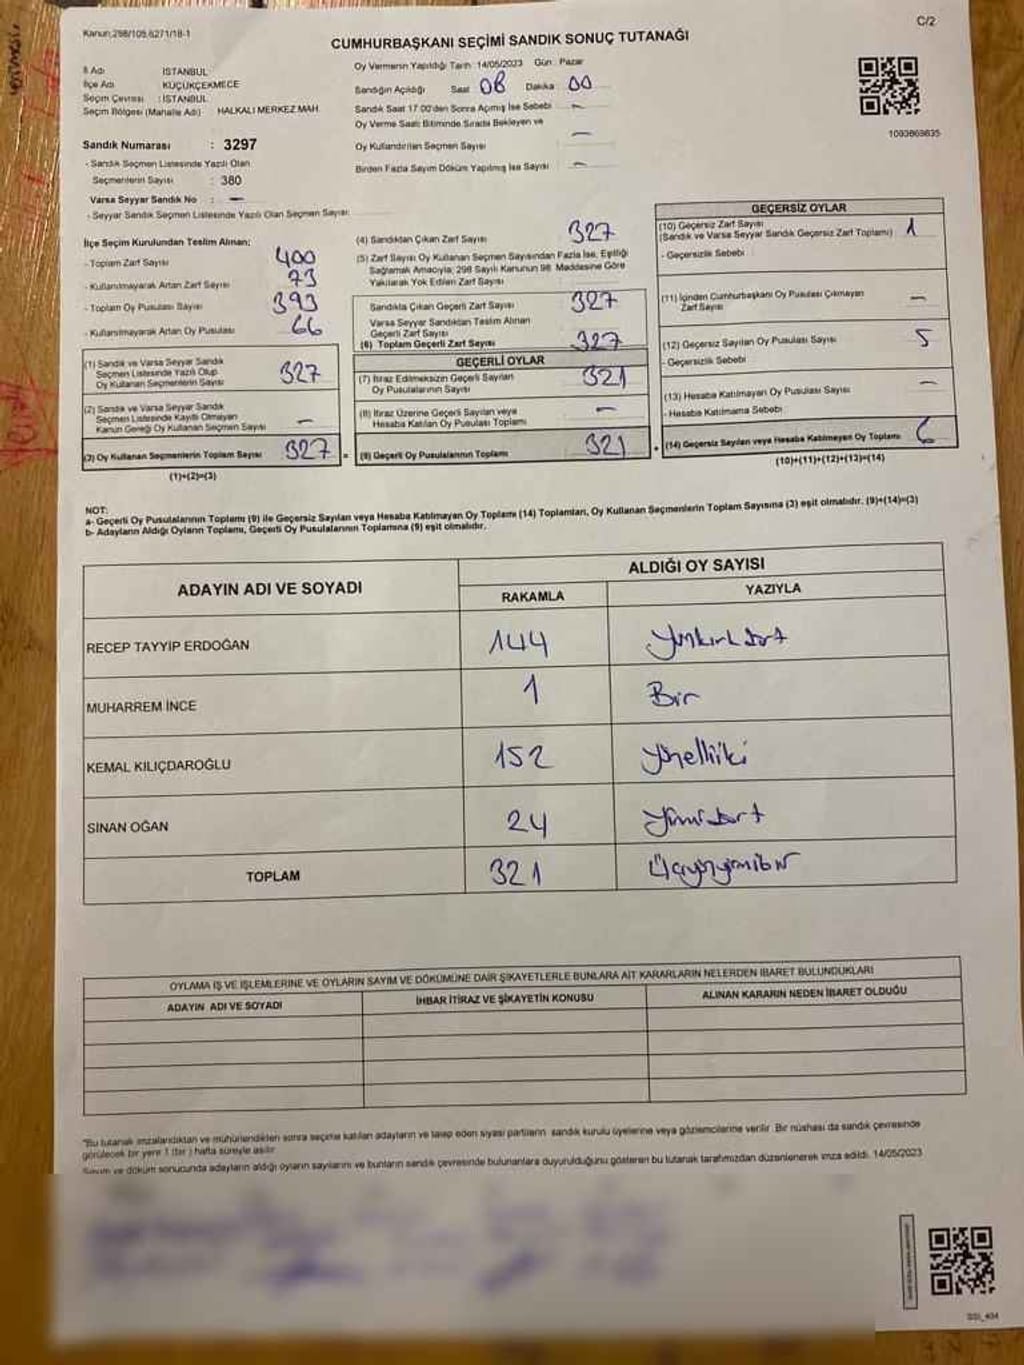 Kanun:298/105,6271/18-1
C/2
CUMHURBAŞKANI SEÇİMİ SANDIK SONUÇ TUTANAĞI
İl Adı : İSTANBUL
İlçe Adı : KÜÇÜKÇEKMECE
Seçim Çevresi : İSTANBUL
Seçim Bölgesi (Mahalle Adı) : HALKALI MERKEZ MAH.
Sandık Numarası : 3297
- Sandık Seçmen Listesinde Yazılı Olan
Seçmenlerin Sayısı : 380
Varsa Seyyar Sandık No : —
- Seyyar Sandık Seçmen Listesinde Yazılı Olan Seçmen Sayısı:
Oy Vermenin Yapıldığı Tarih :14/05/2023 Gün : Pazar
Sandığın Açıldığı Saat 08 Dakika 00
Sandık Saat 17.00'den Sonra Açılmış İse Sebebi —
Oy Verme Saati Bitiminde Sırada Bekleyen ve
Oy Kullandırılan Seçmen Sayısı —
Birden Fazla Sayım Döküm Yapılmış İse Sayısı —
1093869835
İlçe Seçim Kurulundan Teslim Alınan;
- Toplam Zarf Sayısı 400
- Kullanılmayarak Artan Zarf Sayısı 73
- Toplam Oy Pusulası Sayısı 393
- Kullanılmayarak Artan Oy Pusulası 66
(1) Sandık ve Varsa Seyyar Sandık
Seçmen Listesinde Yazılı Olup
Oy Kullanan Seçmenlerin Sayısı 327
(2) Sandık ve Varsa Seyyar Sandık
Seçmen Listesinde Kayıtlı Olmayan
Kanun Gereği Oy Kullanan Seçmen Sayısı —
(3) Oy Kullanan Seçmenlerin Toplam Sayısı 327 =
(1)+(2)=(3)
(4) Sandıktan Çıkan Zarf Sayısı 327
(5) Zarf Sayısı Oy Kullanan Seçmen Sayısından Fazla İse, Eşitliği
Sağlamak Amacıyla; 298 Sayılı Kanunun 98. Maddesine Göre
Yakılarak Yok Edilen Zarf Sayısı
Sandıkta Çıkan Geçerli Zarf Sayısı 327
Varsa Seyyar Sandıktan Teslim Alınan
Geçerli Zarf Sayısı
(6) Toplam Geçerli Zarf Sayısı 327
GEÇERLİ OYLAR
(7) İtiraz Edilmeksizin Geçerli Sayılan
Oy Pusulalarının Sayısı 321
(8) İtiraz Üzerine Geçerli Sayılan veya
Hesaba Katılan Oy Pusulası Toplamı —
(9) Geçerli Oy Pusulalarının Toplamı 321 +
GEÇERSİZ OYLAR
(10) Geçersiz Zarf Sayısı 1
(Sandık ve Varsa Seyyar Sandık Geçersiz Zarf Toplamı)
- Geçersizlik Sebebi
(11) İçinden Cumhurbaşkanı Oy Pusulası Çıkmayan
Zarf Sayısı —
(12) Geçersiz Sayılan Oy Pusulası Sayısı 5
- Geçersizlik Sebebi
(13) Hesaba Katılmayan Oy Pusulası Sayısı —
- Hesaba Katılmama Sebebi
(14) Geçersiz Sayılan veya Hesaba Katılmayan Oy Toplamı 6
(10)+(11)+(12)+(13)=(14)
NOT:
a- Geçerli Oy Pusulalarının Toplamı (9) ile Geçersiz Sayılan veya Hesaba Katılmayan Oy Toplamı (14) Toplamları, Oy Kullanan Seçmenlerin Toplam Sayısına (3) eşit olmalıdır. (9)+(14)=(3)
b- Adayların Aldığı Oyların Toplamı, Geçerli Oy Pusulalarının Toplamına (9) eşit olmalıdır.
ADAYIN ADI VE SOYADI
ALDIĞI OY SAYISI
RAKAMLA YAZIYLA
RECEP TAYYİP ERDOĞAN 144 Yüzkırkdört
MUHARREM İNCE 1 Bir
KEMAL KILIÇDAROĞLU 152 Yüzelliiki
SİNAN OĞAN 24 Yirmidört
TOPLAM 321 Üçyüzyirmibir
OYLAMA İŞ VE İŞLEMLERİNE VE OYLARIN SAYIM VE DÖKÜMÜNE DAİR ŞİKAYETLERLE BUNLARA AİT KARARLARIN NELERDEN İBARET BULUNDUKLARI
ADAYIN ADI VE SOYADI İHBAR İTİRAZ VE ŞİKAYETİN KONUSU ALINAN KARARIN NEDEN İBARET OLDUĞU
*Bu tutanak imzalandıktan ve mühürlendikten sonra seçime katılan adayların ve talep eden siyasi partilerin sandık kurulu üyelerine veya gözlemcilerine verilir. Bir nüshası da sandık çevresinde
görülecek bir yere 1 (bir) hafta süreyle asılır.
Sayım ve döküm sonucunda adayların aldığı oyların sayılarını ve bunların sandık çevresinde bulunanlara duyurulduğunu gösteren bu tutanak tarafımızdan düzenlenerek imza edildi. 14/05/2023
SSI_404